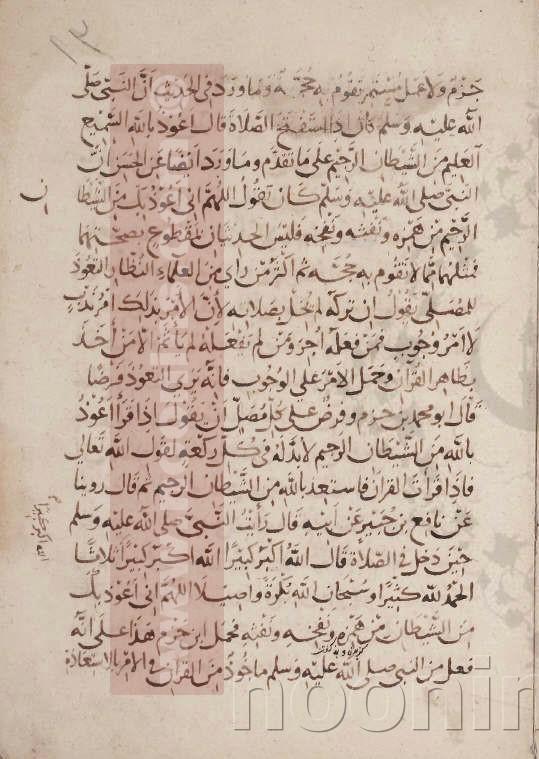 جزم ولا عمل مستمر تقوم به حجة وما ورد في الحديث ان النبي صلى
الله عليه وسلم كان اذا استفتح الصلاة قال اعوذ بالله السميع
العليم من الشيطان الرجيم على ما تقدم وما ورد ايضا عن الحسن ان
النبي صلى الله عليه وسلم كان يقول اللهم اني اعوذ بك من الشيطا
ن
الرجيم من همزه ونفثه ونفخه فليس الحديثان بمقطوع بصحتهما
فمثلهما مما لا تقوم به حجة ثم اكثر من راي من العلماء النظار التعوذ
للمصلي يقول ان تركه لم يخل بصلاته لان الامر بذلك امر ندب
لا امر وجوب فمن فعله اجر ومن لم يفعله لم ياثم الا من اخذ
بظاهر القران وحمل الامر على الوجوب فانه يرى التعوذ فرضا
قال ابو محمد بن حزم وفرض على كل مصل ان يقول اذا قرا اعوذ
بالله من الشيطان الرجيم لا بد له في كل ركعة لقول الله تعالى
فاذا قرات القران فاستعذ بالله من الشيطان الرجيم ثم قال روينا
عن نافع بن جبير عن ابيه قال رايت النبي صلى الله عليه وسلم
حين دخل في الصلاة قال الله اكبر كبيرا الله اكبر كبيرا ثلاثا
الله اكبر كبيرا
الحمد لله كثيرا وسبحان الله بكرة واصيلا اللهم اني اعوذ بك
من الشيطان من همزه ونفخه ونفثه فحمل ابن حزم هذا على انه
فعل من النبي صلى الله عليه وسلم ماخوذ من القران في الامر بالاستعاذة
noonin